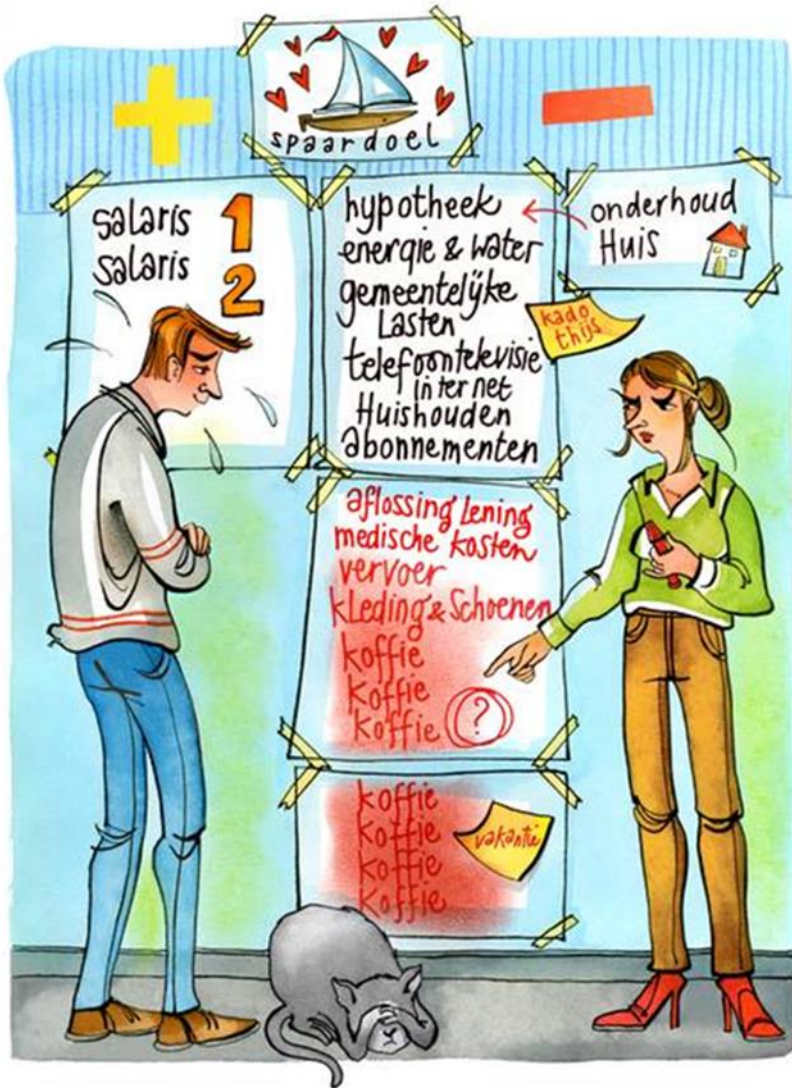 spaardoel
salaris 1
salaris 2
hypotheek
energie & water
gemeentelijke
Lasten
telefoontelevisie
internet
Huishouden
abonnementen
onderhoud
Huis
kado
thijs
aflossing Lening
medische kosten
vervoer
kleding & Schoenen
koffie
koffie
koffie ?
koffie
koffie
koffie
koffie
vakantie